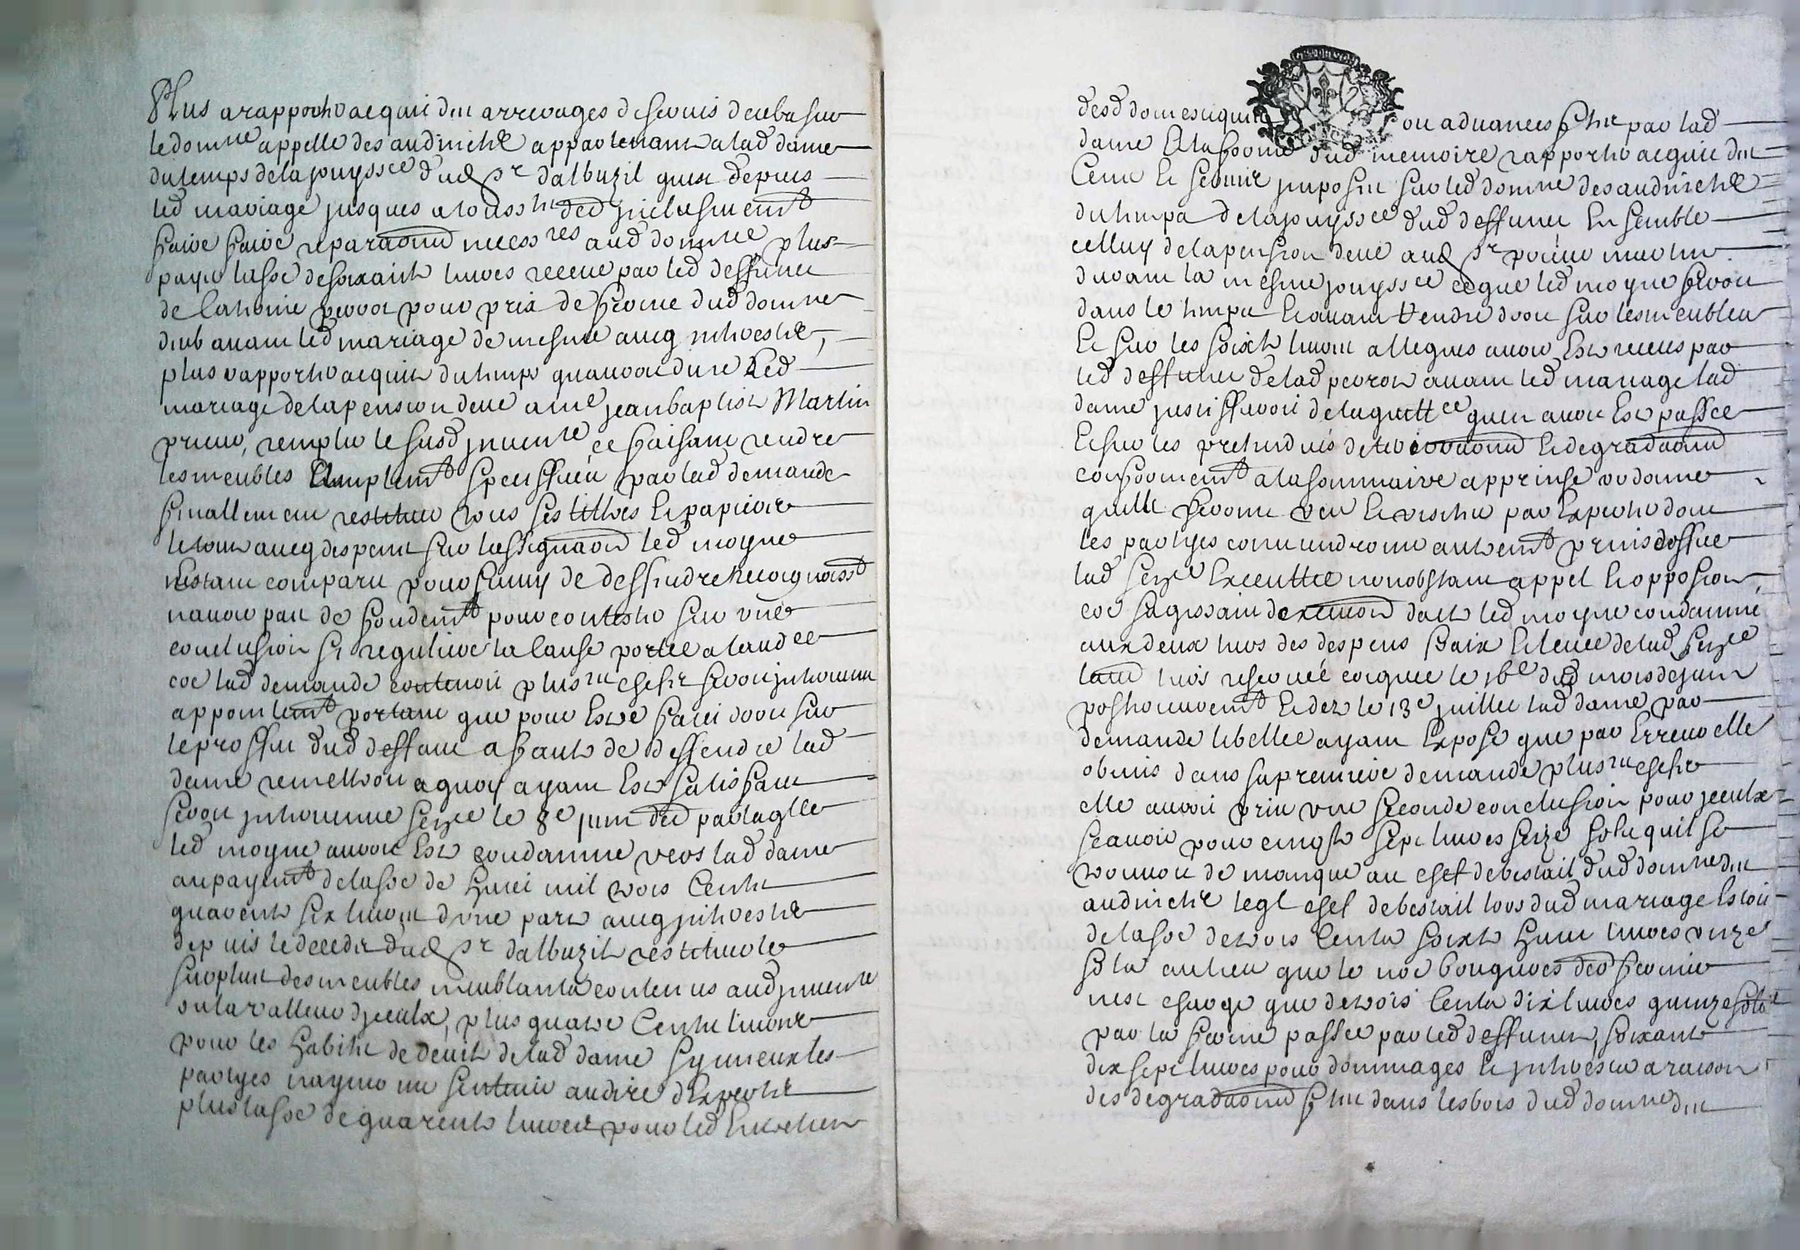 Plus a rapporter acquit des arrerages des cens deubs sur
le domne appellé des audinets appartenant a lad dame
du temps de la jouyssce dud sr dalbuzit qui est depuis
led mariage jusques a lo assion ded inclusivemt
faire faire reparaõns necessres aud domne plus
payer la sõe de soixante livres receue par led deffunct
de Lanoine peror pour prix de ferme dud domne
deub avant led mariage de mesme aveq interests,
plus rapporter acquit du temps quauroit duré led
mariage de la pension deue a me jean baptiste Martin
prieur, remplir le susd inventre ce faisant rendre
les meubles amplemt speciffiés par lad demande
finallement restituer tous ses tiltres et papiers
le tout aveq despens sur lassignaõn led moyne
nestant comparu pour fuir de deffendre recognoisst
navoir pas de fondemt pour contester sur une
conclusion si reguliere la cause portée a laudce
coe lad demande contenoit plusrs chefs seroit intervenu
appointemt portant que pour estre faict droit sur
le proffit dud deffaut a faute de deffendre lad
dame remettroit a quoy ayant esté satisfait
seroit intervenue sence le 8e juin ded par laqlle
led moyne auroit esté condamné vers lad dame
au payemt de la sõe de huict mil trois cents
quarente six livres dune part aveq interests
depuis le deceds dud sr dalbuzit restituer le
surplus des meubles meublants contenus aud inventre
ou la valleur diceulx, plus quatre cents livres
pour les habits de deuil de lad dame sy mieux les
partyes nayment sen tenir au dire dexperts
plus la sõe de quarente livres pour led entretien
desd domestiques ou advances fts par lad
dame a la forme dud memoire rapporter acquit des
cens et servis imposés sur led domne des audinets
du temps de la jouyssce dud deffunct ensemble
celluy de la pension deue aud sr prieur martin
durant la mesme jouyssce ce que led moyne feroit
dans le temps et avant rendre droit sur les meubles
et sur les soixte livres allegués avoir esté receus par
led deffunct de lad peron avant led mariage lad
dame justiffieroit de la quittce quen avoit esté passée
et sur les pretendues deterioraõns et degradaõns
conformemt a la sommaire apprinse ordonne
quelle seroit veu et visitée par experts dont
les partyes conviendront autremt prins doffice
lad sence executtée nonobstant appel et opposion
coe sagissant dexecuõn dott led moyne condamné
aux deux tiers des despens frais et levée de lad sence
lautre tiers reservé corquée le 16e dud mois de juin
posterieuremt et dez le 13e juillet lad dame par
demande libellée ayant exposé que par erreur elle
obmis dans sa premiere demande plusrs chefs
elle auroit prix une seconde conclusion pour iceulx
scavoir pour cinqte sept livres seize sols quil se
trouvoit de manque au chef de bestail dud domne des
audinets leql chef de bestail lors dud mariage estoit
de la sõe de trois cents soixte huict livres unze
sols au lieu que le noe bougnoes ded fermier
nest charge que de trois cents dix livres quinze sols
par la ferme passée par led deffunct, soixante
dix sept livres pour dommages et interests a raison
des degradaõns ftes dans les bois dud domne des